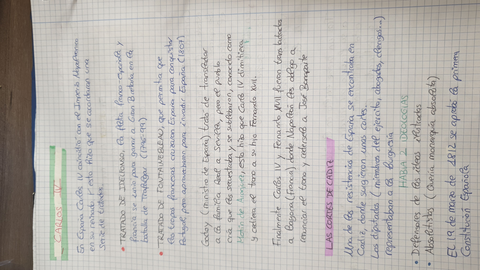 CARLOS IV
En España Carlos IV coincidió con el Imperio Napoleónico
en su reinado, esto hizo que se acordaran una
serie de tratados
• TRATADO DE IDELFONSO: La flota franco española y
francia se unía para ganar a Gran Bretaña en la
batalla de Trafalgar
• TRATADO DE FONTAINEBLEAU, que permitía que
las tropas francesas cruzasen España para conquistar
Portugal, pero aprovecharon para invadir España (1807)
Godoy (ministro de España) trató de transladar
a la familia Real a Sevilla, pero el pueblo
creía que los secuestraba y se sublevaron, conocido como
Motín de Aranjuez, esto hizo que Carlos IV dimitiera
y cediera el trono a su hijo Fernando
Finalmente Carlos IV y Fernando VII fueron trasladados
a Bayona (Francia) donde Napoleón los obligó a
renunciar el trono y cedérselo a José Bonaparte
LAS CORTES DE CADIZ
Una de las resistencias de España se encontraba en
Cadiz, donde surgieron unas cortes.
Los diputados (miembros del ejército, abogados, clérigos...)
representaban a la Burguesía
HABÍA 2 IDEOLOGÍAS
• Defensores de las ideas ilustradas
• Absolutistas (Quería monarquía absoluta)
El 19 de marzo de 1812 se aprobó la primera
Constitución Española